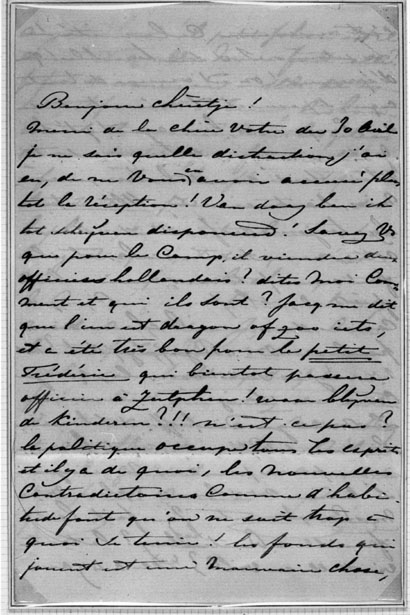 Bonjour chèretje!
Merci de la chère Vôtre du 30 Août
je ne sais quelle distraction j'ai
eu, de ne Vous en avoir accusé plu-
tôt la réception! Van daag ben ik
tot disponeerd! Savez V.
que pour le Camp, il viendra des
officiers hollandais? dites moi Com-
ment et qui ils sont? Jacq me dit
que l'un est dragon of zoo iets,
et a été très bon pour le petit
Frédéric qui bientot passera
officier à Zutphen! waar blijven
de kinderen?!! n'est ce pas?
la politique occupe tous les esprits
et il y a de quoi, les nouvelles
Contradictoires Comme d'habi-
tude font qu'on ne sait trop à
quoi se tenir! les fonds qui
jouent est une mauvaise chose,